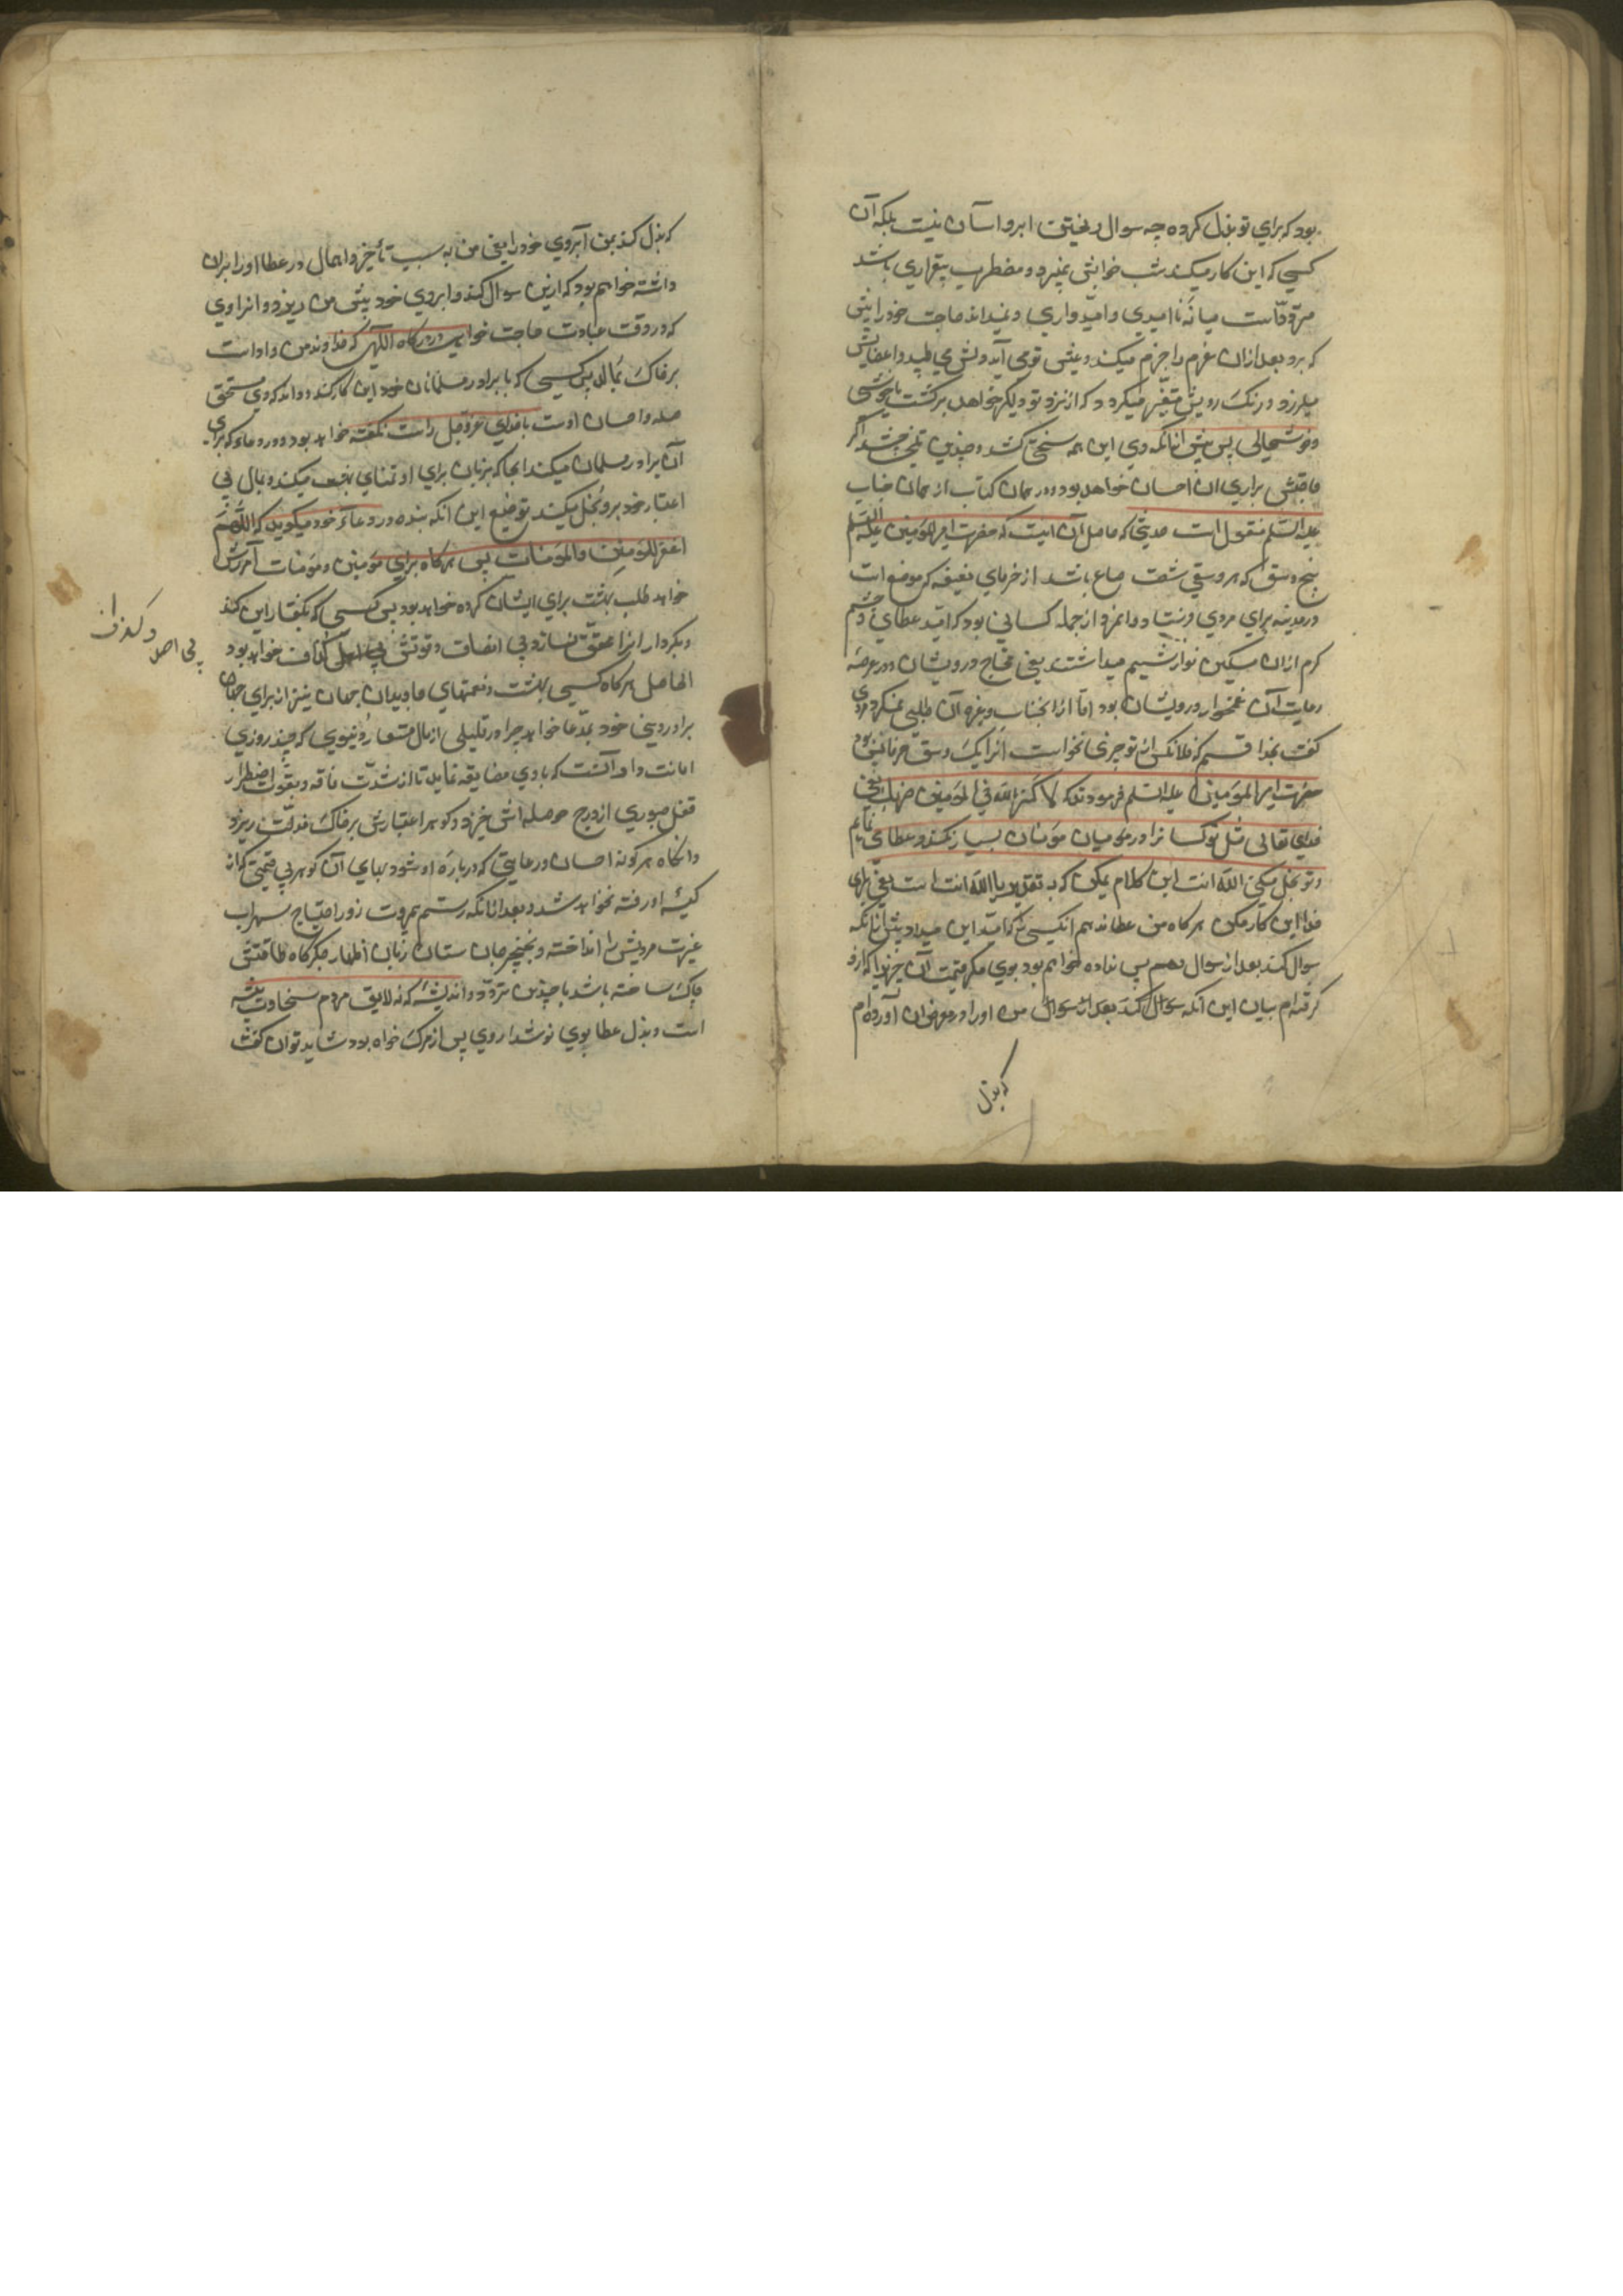 بود که برای تو بذل کرده چه سوال و ریختن ابرو اسان نیست بلکه آن
کسی که این کار میکند شب خوابش نمیبرد و مضطرب بیقراری باشد
متردّد است میانهٔ ناامیدی و امیدواری و نمیداند حاجت خود را پیش
که برد بعد ازان عزم را جزم میکند و پیش تو می آید و دلش می طپد و اعضایش
میلرزد و رنگ رویش متغیّر میگردد که از نزد تو دیگر خواهد برگشت یا خوشی
و خوشحالی پس پیش ازانکه وی این همه سختی کشد و چندین تلخی چشد اگر
حاجتش براری ان احسان خواهد بود و در همان کتاب از همان جناب
علیه السّلم منقول است حدیثی که حاصل آن اینست که حضرت امیر المؤمنین علیه السّلم
پنج وسق که هر وسقی شصت صاع باشد از خرمای بغیبغه که موضع است
در مدینه برای مردی فرستاد و انمرد از جمله کسانی بود که امید عطای و چشم
کرم ازان مسکین نواز شیم میداشتند یعنی محتاج و درویشان و در عرصهٔ
رعایت آن غمخوار درویشان بود امّا از انجناب و غیره آن طلبی نمیکرد مردی
گفت بخدا قسم که فلانکس از تو چیزی نخواست انرا یک وسق خرما کافی بود
حضرت امیر المؤمنین علیه السّلم فرمودند که لا کثّر اللّه فی المؤمنین ضربک یعنی
خدای تعالی مثل تو کسانرا در میان مؤمنان بسیار نکند عطا من می نمایم
و تو بخل میکنی اللّه انت این کلام یمکن که به تقدیر یا اللّه انت است یعنی برای
خدا این کار مکن هرگاه من عطا ندهم انکسی را که امید این میدارد پیش ازانکه
سوال کند بعد از سوال دهم پس نداده خواهم بود بوی مگر قیمت آن چیزی را که ازو
گرفته ام بیان این آنکه سوال کند بعد از سوال من او را در معرض ان آورده ام
که بذل
که بذل کند بمن آبروی خود را یعنی من به سبب تأخیر و اهمال در عطا او را بران
داشته خواهم بود که ازین سوال کند و ابروی خود پیش من ریزد و انراوی
که در وقت عبادت حاجت خواهی در درگاه الهی که خداوند من و اوست
بر خاک نمالد پس کسی که با برادر مسلمانان خود این کار کند و داند که وی مستحق
صله و احسان اوست با خدای عزّ و جل راست نگفته خواهد بود در دعای که برای
آن برادر مسلمان میکند انجا که بزبان برای او تمنای بهشت میکند و بمال بی
اعتبار خود برو بخل میکند توضیح این انکه بنده در دعای خود میگوید که اللّهمّ
اغفر للمؤمنین والمؤمنات پس هرگاه برای مؤمنین و مؤمنات آمرزش
خواهد طلب بهشت برای ایشان کرده خواهد بود پس کسی که بگفتار این کند
و بکردار انرا محقّق نسازد بی انصاف و قولش بی اصل و گزاف خواهد بود
الحاصل هرگاه کسی بهشت و نعمتهای جاویدان جهان نیز از برای
برادر دینی خود بدعا خواهد چرا در قلیلی از مال مستعار دنیوی که چند روزی
امانت دار آنست که با وی مضایقه نماید تا از شدّت فاقه و بقوّت اضطرار
قفل صبوری از درج حوصله اش خیزد و گوهر اعتبارش بر خاک مذلّت ریزد
وانگاه هر گونه احسان و رعایتی که درباره او شود ببهای آن گوهر بی قیمتی که از
کیسهٔ او رفته نخواهد شد و بعد ازانکه رستم مروت زور احتیاج سهراب
غیرت مردیش را انداخته و بخنجر جان ستان زبان اظهار جگرگاه طاقتش
چاک ساخته باشد با چندین تردّد و اندیشه که نه لایق مردم سخاوت پیشه
است و بذل عطا بوی نوشداروی پس از مرگ خواهد بود و شاید توان گفت
بی اصل و گزاف